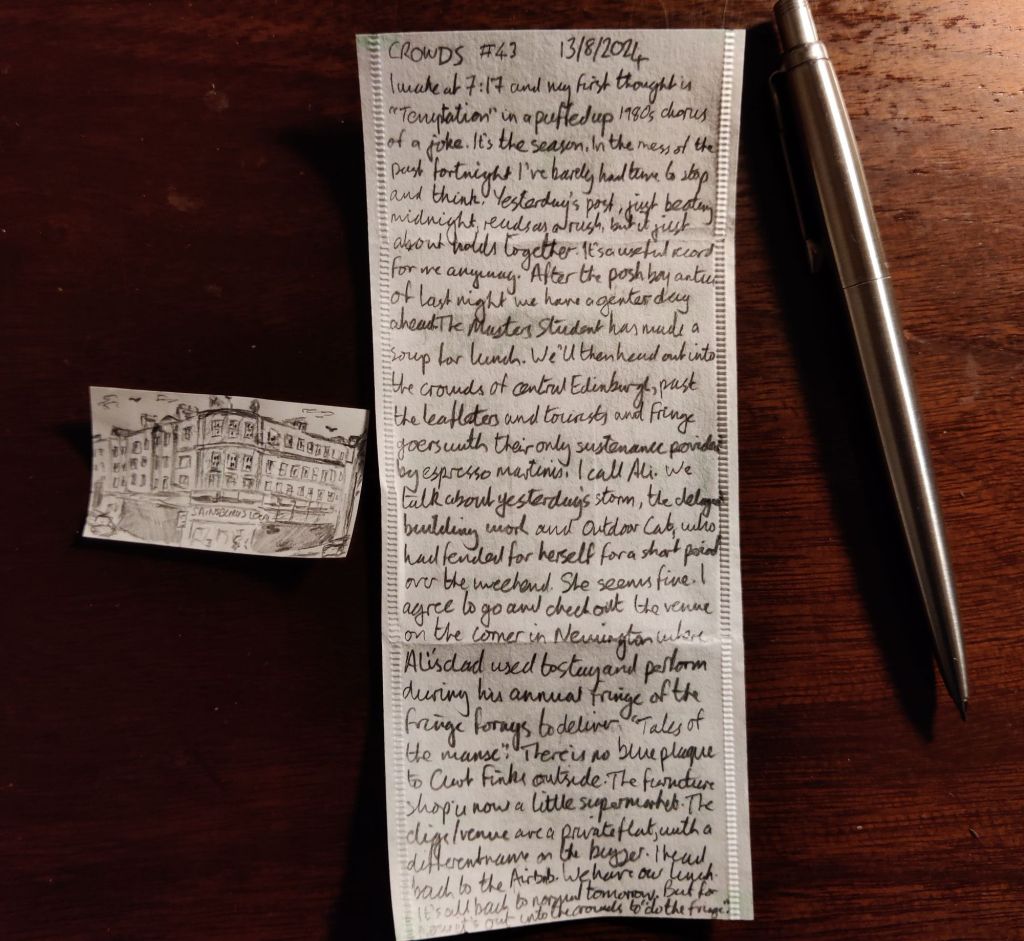 CROWDS #43 13/8/2024
I wake at 7:17 and my first thought is
"Temptation" in a puffed up 1980s chorus
of a joke. It's the season. In the mess of the
past fortnight I've barely had time to stop
and think. Yesterday's post, just beating
midnight, reads as a rush, but it just
about holds together. It's a useful record
for me anyway. After the posh boy antics
of last night we have a gentler day
ahead. The Masters Student has made a
soup for lunch. We'll then head out into
the crowds of central Edinburgh, past
the leafleters and tourists and Fringe
goers with their only sustenance provided
by espresso martinis. I call Ali. We
talk about yesterday's storm, the delayed
building work and Outdoor Cat, who
had fended for herself for a short period
over the weekend. She seems fine. I
agree to go and check out the venue
on the corner in Newington where
Ali's dad used to stay and perform
during his annual fringe of the
fringe forays to deliver, "Tales of
the manse". There is no blue plaque
to Curt Finks outside. The furniture
shop is now a little supermarket. The
digs/venue are a private flat, with a
different name on the buzzer. I head
back to the Airbnb. We have our lunch.
It's all back to normal tomorrow. But for
now it's out into the crowds to "do the fringe".
SAINSBURYS LOCAL